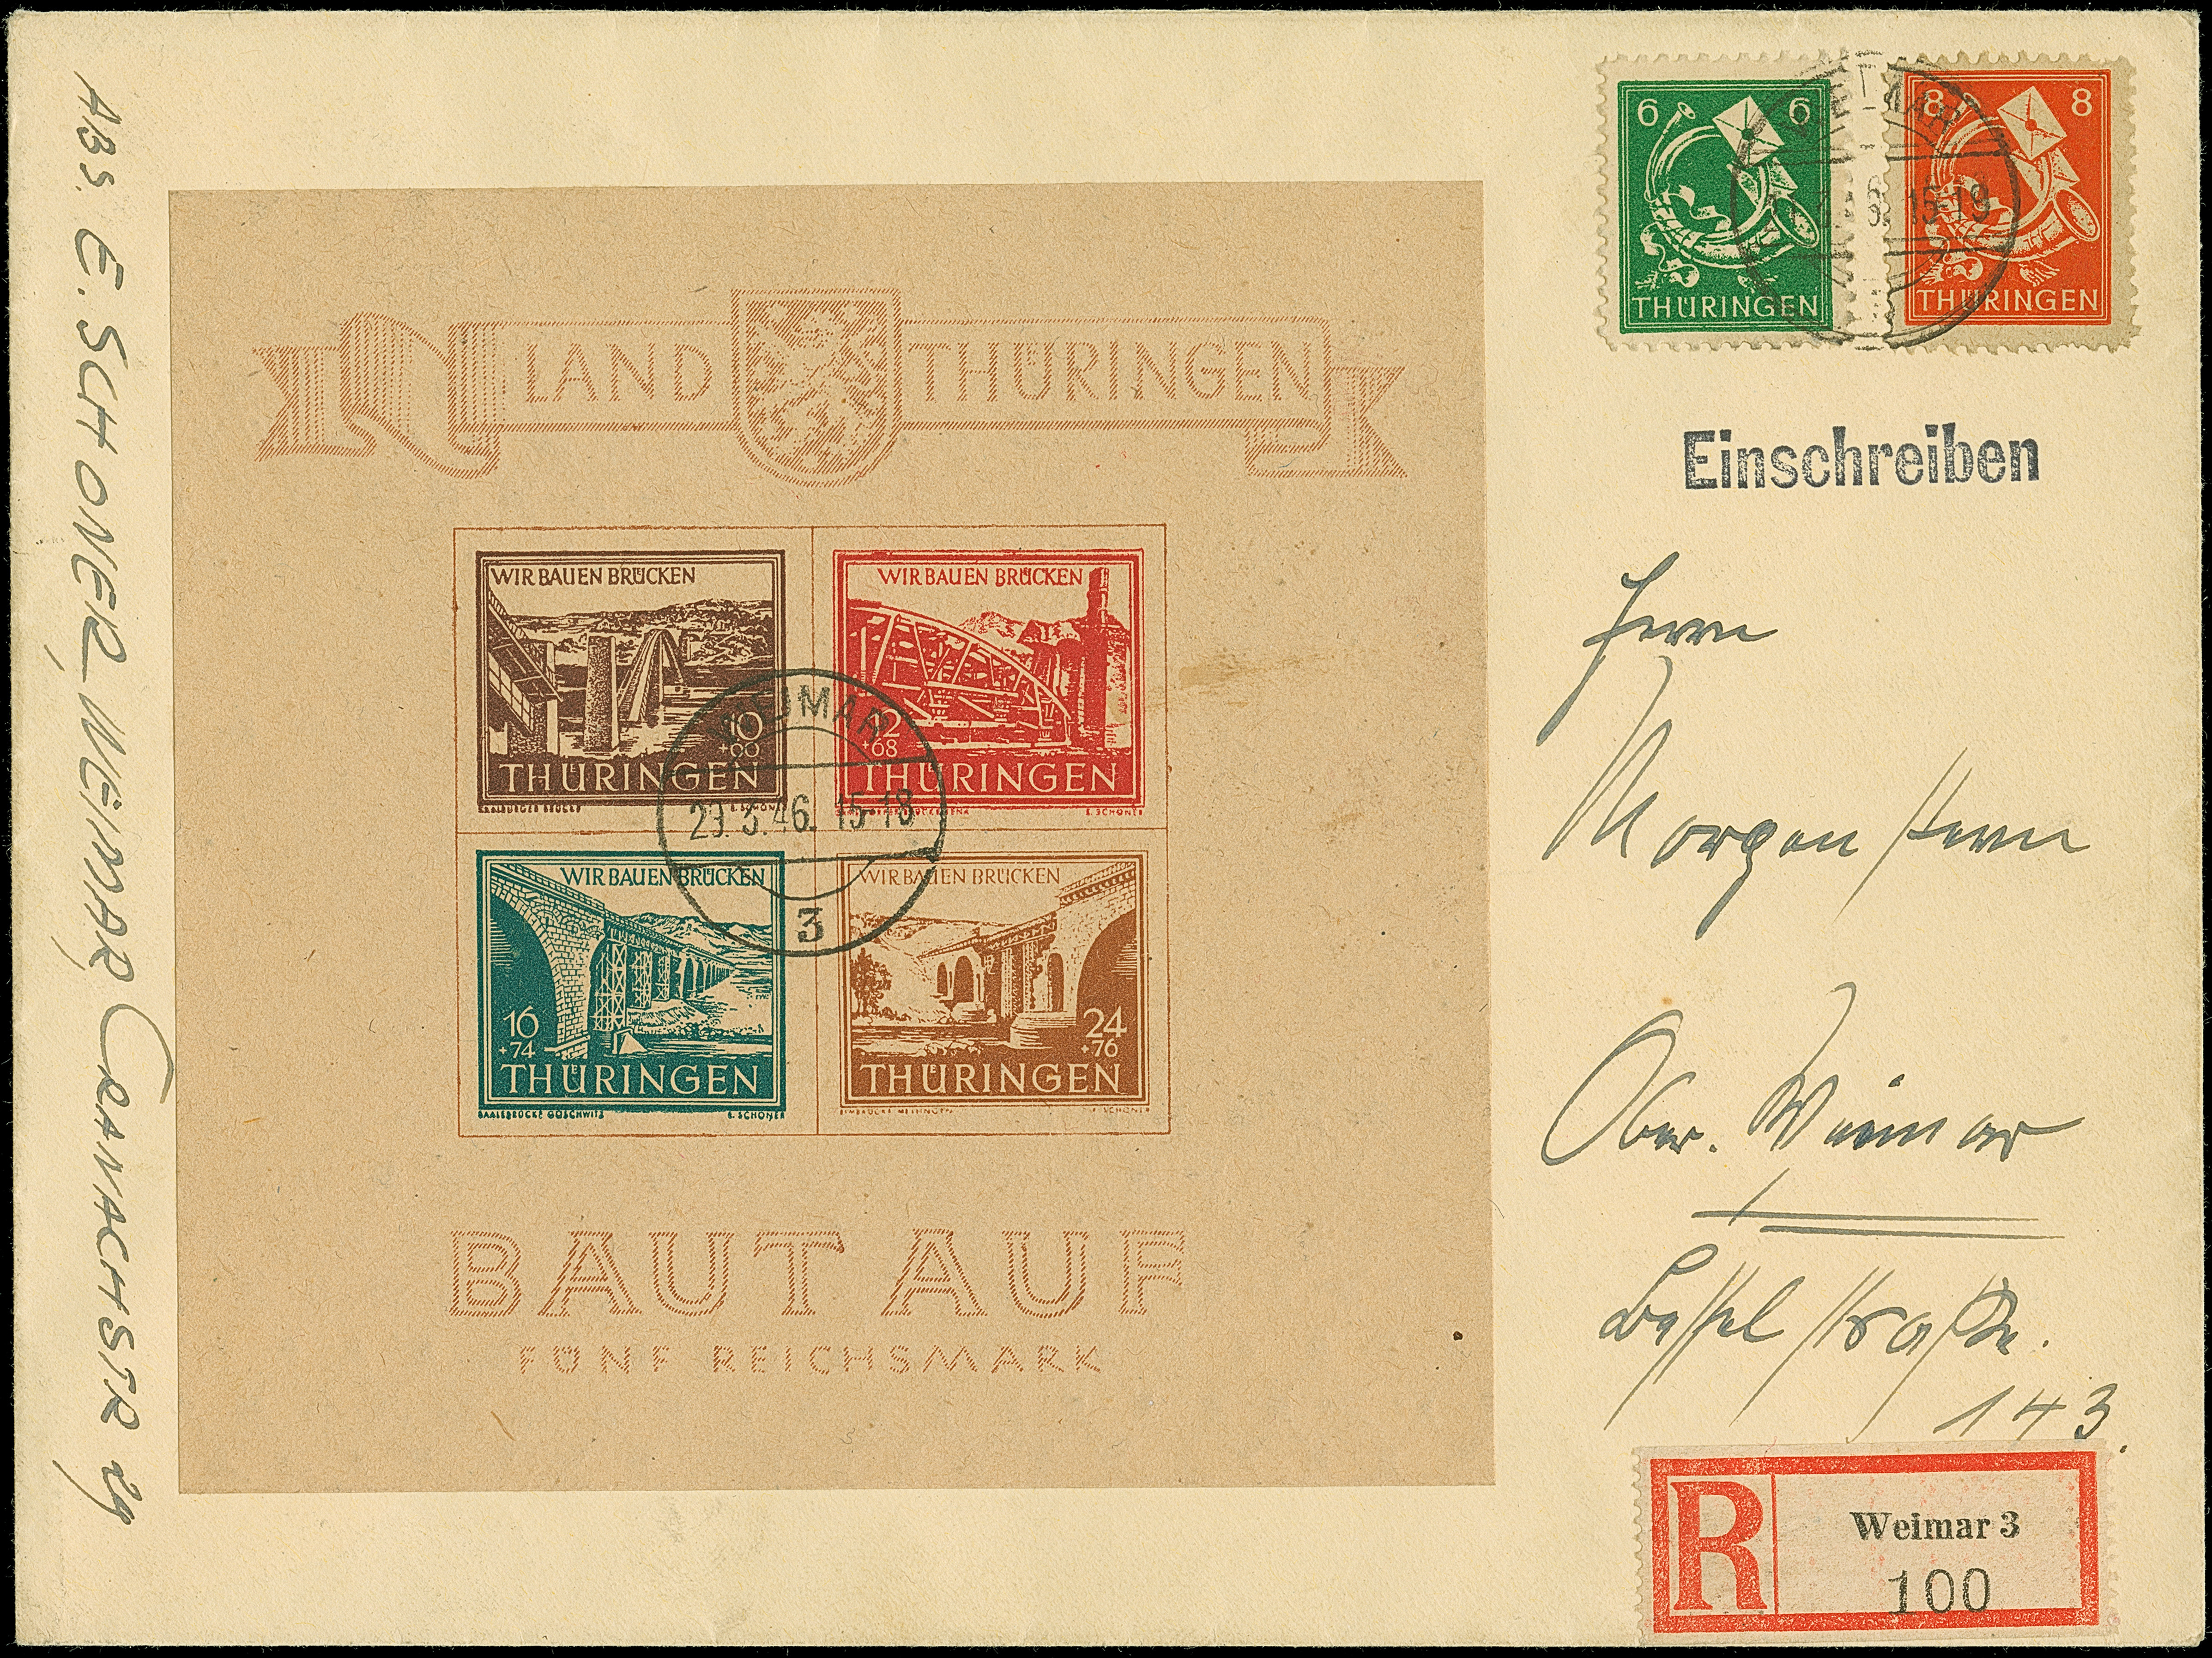 ABS. E. SCHONER WEIMAR CRANACHSTR 24
6 6
THÜRINGEN
8 8
THÜRINGEN
WEIMAR
15-19
Einschreiben
LAND THÜRINGEN
WIR BAUEN BRÜCKEN
10
THÜRINGEN
E. SCHONER
WIR BAUEN BRÜCKEN
12
+68
THÜRINGEN
E. SCHONER
WEIMAR
29.3.46. 15-18
3
WIR BAUEN BRÜCKEN
16
+74
THÜRINGEN
SAALEBRÜCKE GÖSCHWITZ E. SCHONER
WIR BAUEN BRÜCKEN
24
+76
THÜRINGEN
E. SCHONER
BAUT AUF
FÜNF REICHSMARK
Herrn
Morgenstern
Ober. Weimar
straße.
143.
R
Weimar 3
100